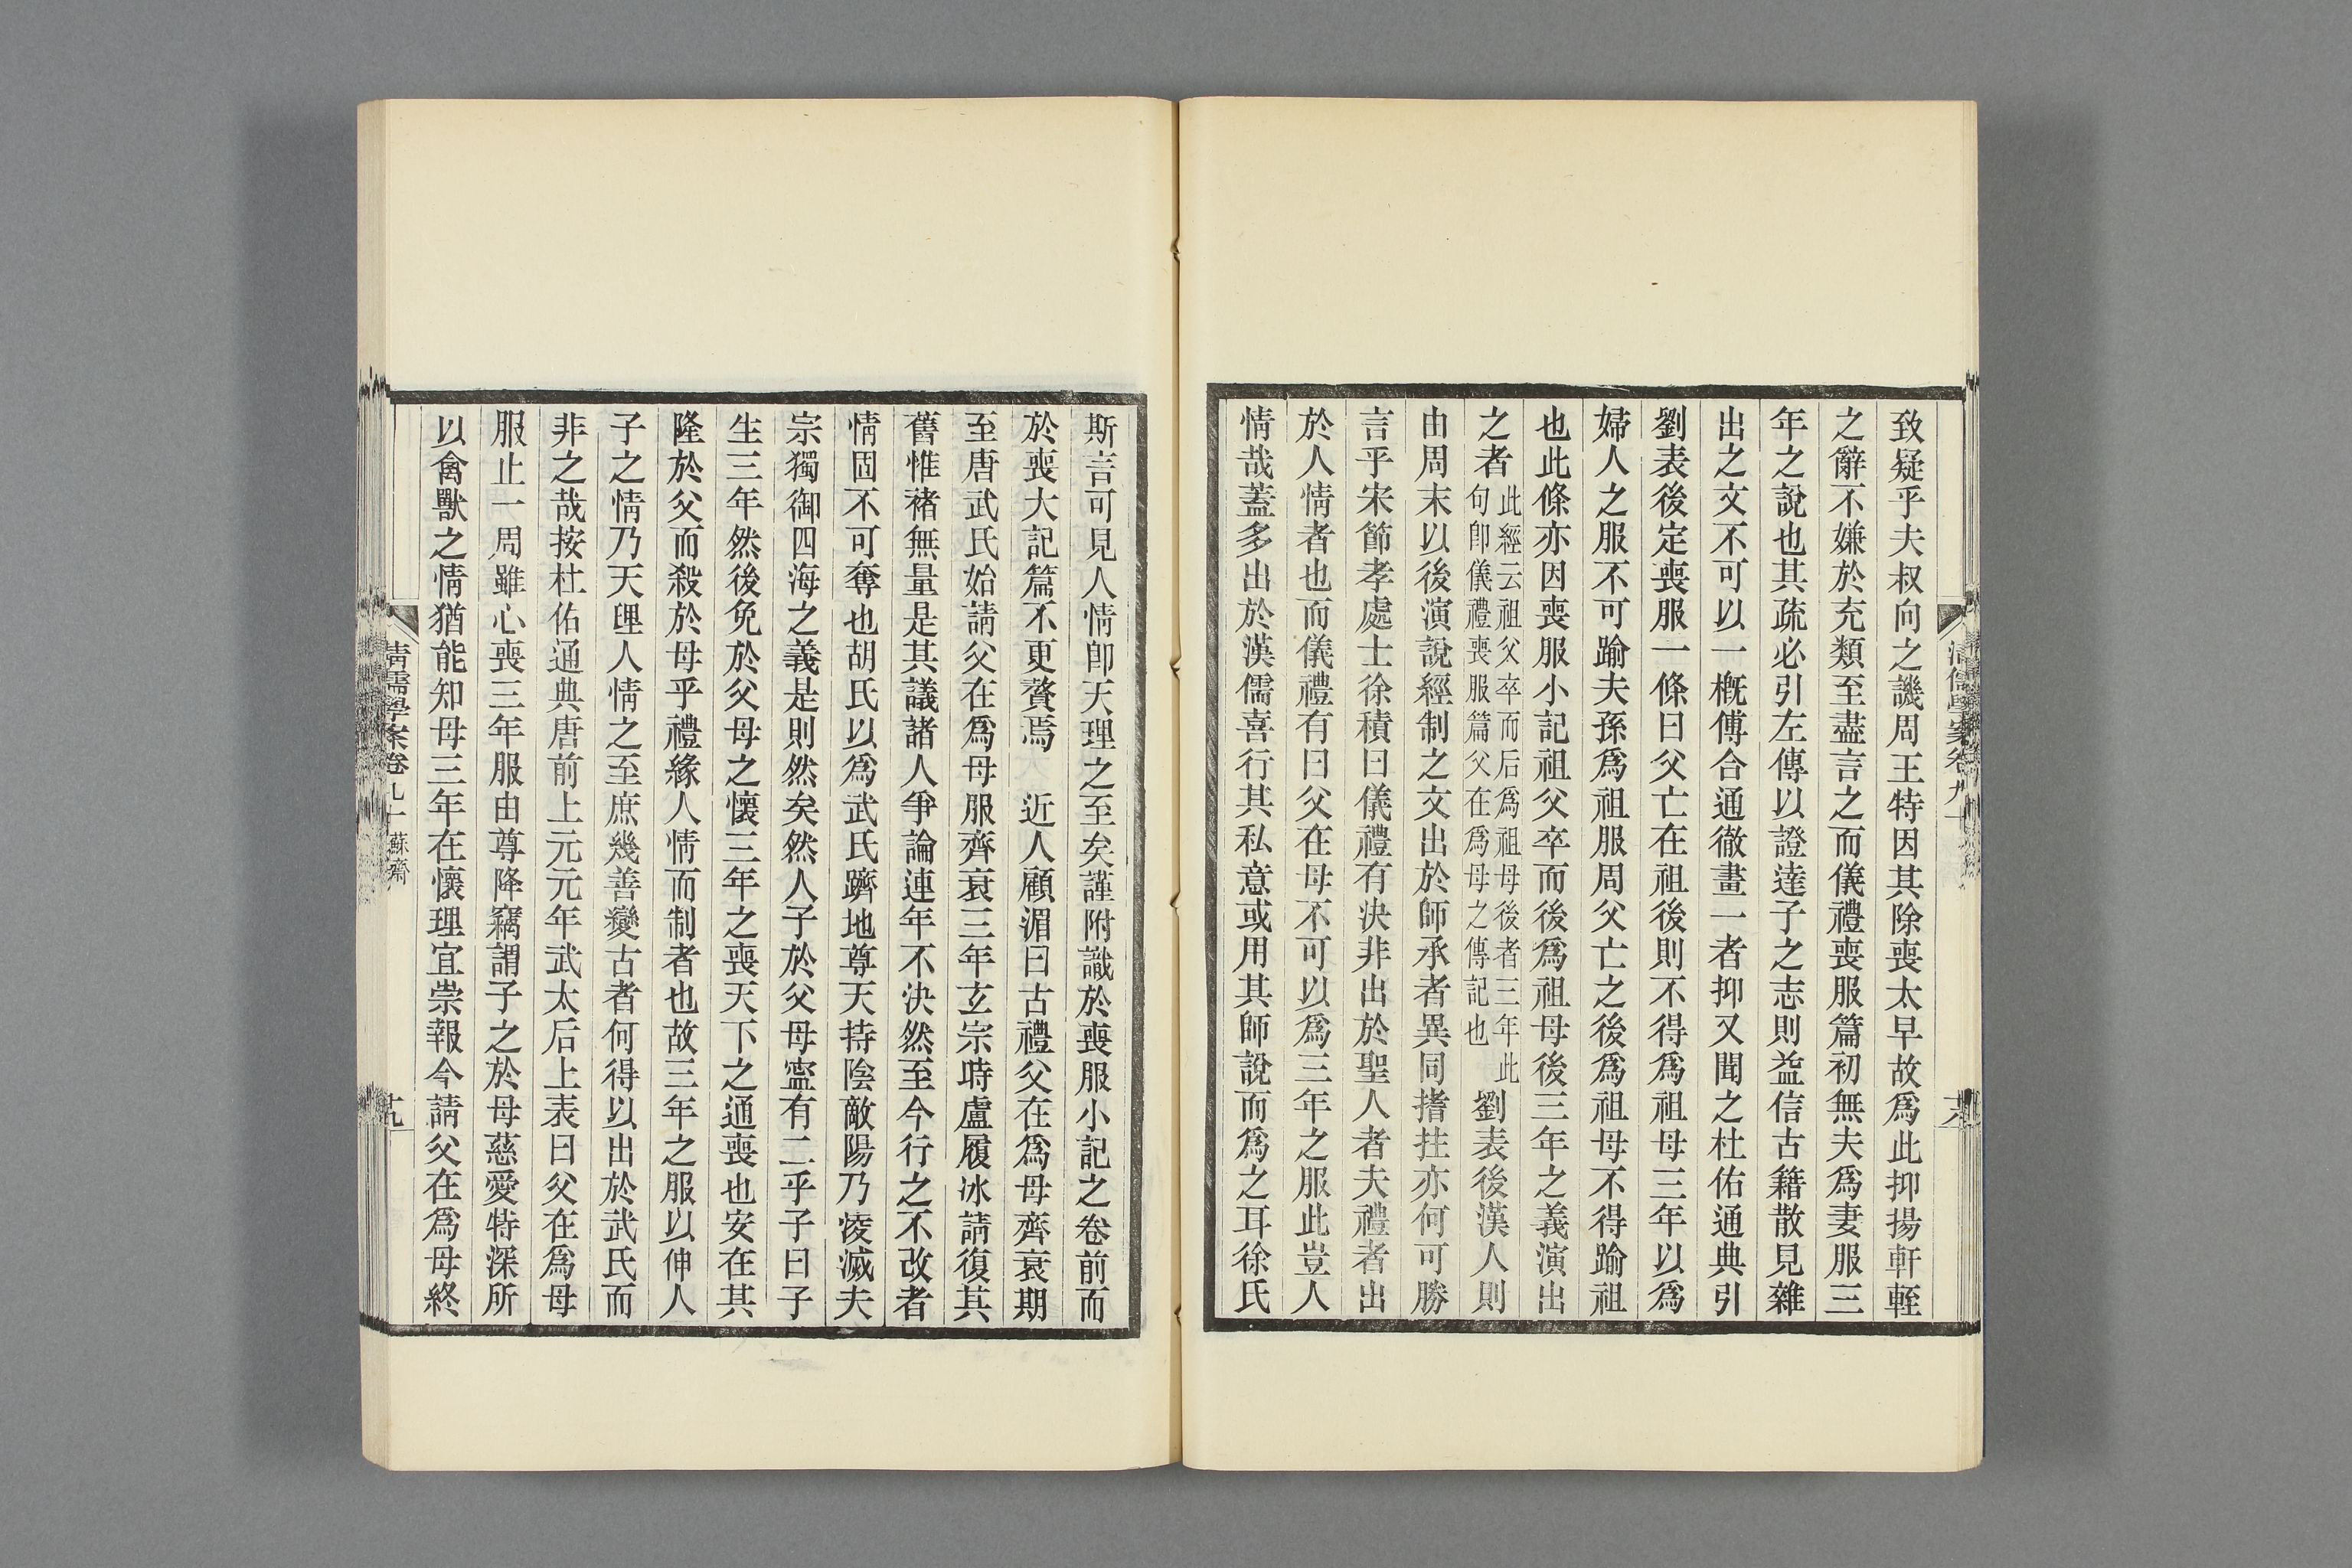 致疑乎夫叔向之譏周王特因其除喪太早故爲此抑揚軒輊
之辭不嫌於充類至盡言之而儀禮喪服篇初無夫爲妻服三
年之說也其疏必引左傳以證達子之志則益信古籍散見雜
出之文不可以一槪傅合通徹畫一者抑又聞之杜佑通典引
劉表後定喪服一條曰父亡在祖後則不得爲祖母三年以爲
婦人之服不可踰夫孫爲祖服周父亡之後爲祖母不得踰祖
也此條亦因喪服小記祖父卒而後爲祖母後三年之義演出
之者此經云祖父卒而后爲祖母後者三年此句卽儀禮喪服篇父在爲母之傳記也劉表後漢人則
由周末以後演說經制之文出於師承者異同搘拄亦何可勝
言乎宋節孝處士徐積曰儀禮有決非出於聖人者夫禮者出
於人情者也而儀禮有曰父在母不可以爲三年之服此豈人
情哉蓋多出於漢儒喜行其私意或用其師說而爲之耳徐氏
斯言可見人情卽天理之至矣謹附識於喪服小記之卷前而
於喪大記篇不更贅焉　近人顧湄曰古禮父在爲母齊衰期
至唐武氏始請父在爲母服齊衰三年玄宗時盧履冰請復其
舊惟褚無量是其議諸人爭論連年不決然至今行之不改者
情固不可奪也胡氏以爲武氏躋地尊天持陰敵陽乃陵滅夫
宗獨御四海之義是則然矣然人子於父母寧有二乎子曰子
生三年然後免於父母之懷三年之喪天下之通喪也安在其
隆於父而殺於母乎禮緣人情而制者也故三年之服以伸人
子之情乃天理人情之至庶幾善變古者何得以出於武氏而
非之哉按杜佑通典唐前上元元年武太后上表曰父在爲母
服止一周雖心喪三年服由尊降竊謂子之於母慈愛特深所
以禽獸之情猶能知母三年在懷理宜崇報今請父在爲母終
清儒學案卷九十　蘇齋
十九